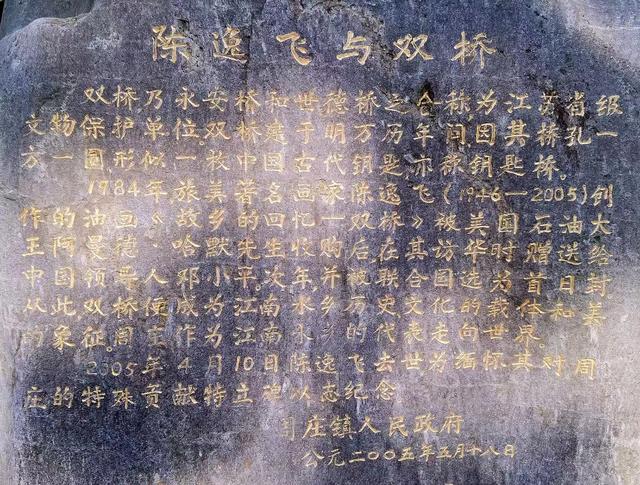 陈逸飞与双桥
双桥乃永安桥和世德桥之合称,为江苏省级
文物保护单位。双桥建于明万历年间,因其桥孔一
方一圆,形似一枚古代钥匙,亦称钥匙桥。
1984年旅美中国著名画家陈逸飞(1946—2005)创
作的油画《故乡的回忆—双桥》被美国石油大
王阿曼德·哈默先生收购后,在其访华时赠送给
中国领导人邓小平。次年,并被联合国选为首日封
从此,双桥便成为江南水乡历史文化的载体和美
的象征。周庄作为江南水乡的代表走向世界。
2005年4月10日陈逸飞去世,为缅怀其对周
庄的特殊贡献特立碑以志纪念
周庄镇人民政府
公元二00五年五月十八日